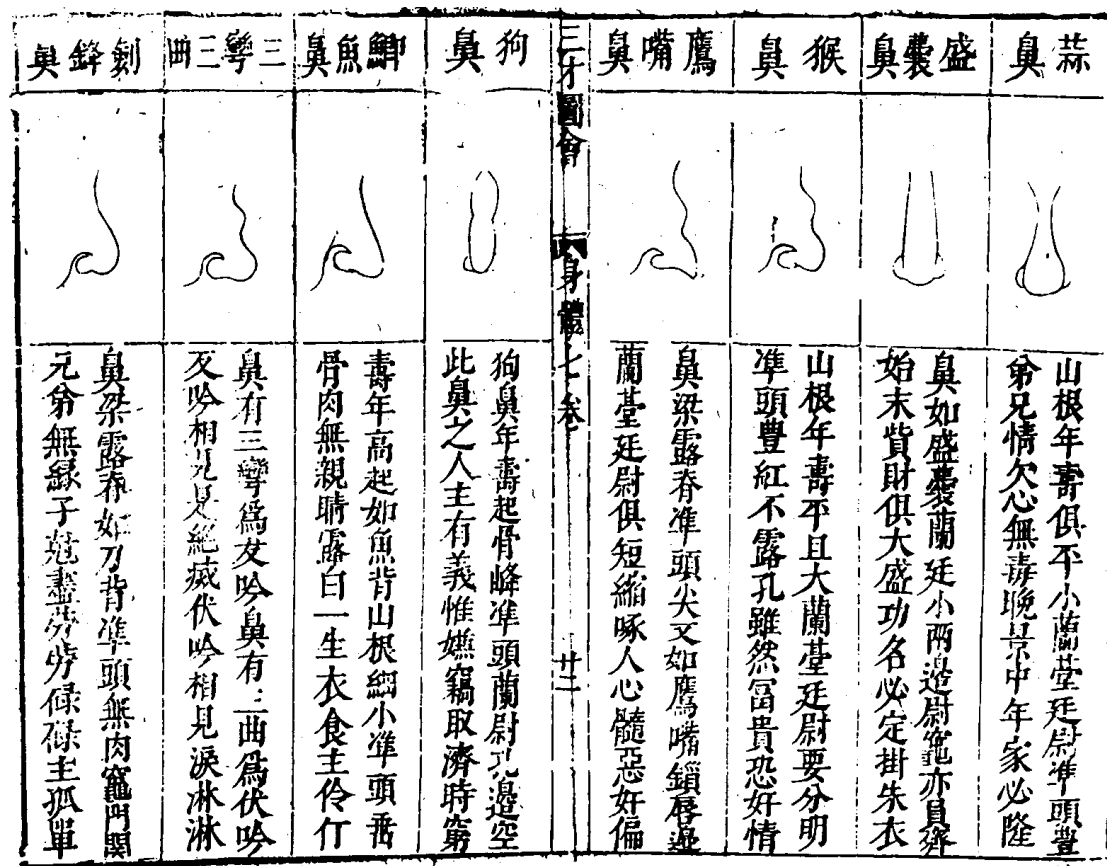 蒜鼻
山根年壽俱平小蘭臺廷尉準頭豊
弟兄情欠心無毒晚景中年家必隆
盛囊鼻
鼻如盛囊蘭廷小兩邉尉竈亦員齊
始末貲財俱大盛功名必定掛朱衣
猴鼻
山根年壽平且大蘭臺廷尉要分明
準頭豊紅不露孔雖然冨貴恐奸情
鷹嘴鼻
鼻梁露脊準頭尖又如鷹嘴鎖唇邉
蘭臺廷尉俱短縮啄人心髓惡奸偏
三才圖會
身體七卷
廿二
狗鼻
狗鼻年壽起骨峰準頭蘭尉孔邉空
此鼻之人主有義惟嫌竊取濟時窮
鯽魚鼻
壽年高起如魚背山根細小準頭垂
骨肉無親睛露白一生衣食主伶仃
三彎三曲
鼻有三彎爲反吟鼻有三曲爲伏吟
反吟相見是絕滅伏吟相見淚淋淋
劍鋒鼻
鼻梁露脊如刀背準頭無肉竈門開
兄弟無緣子尅盡勞勞碌碌主孤單